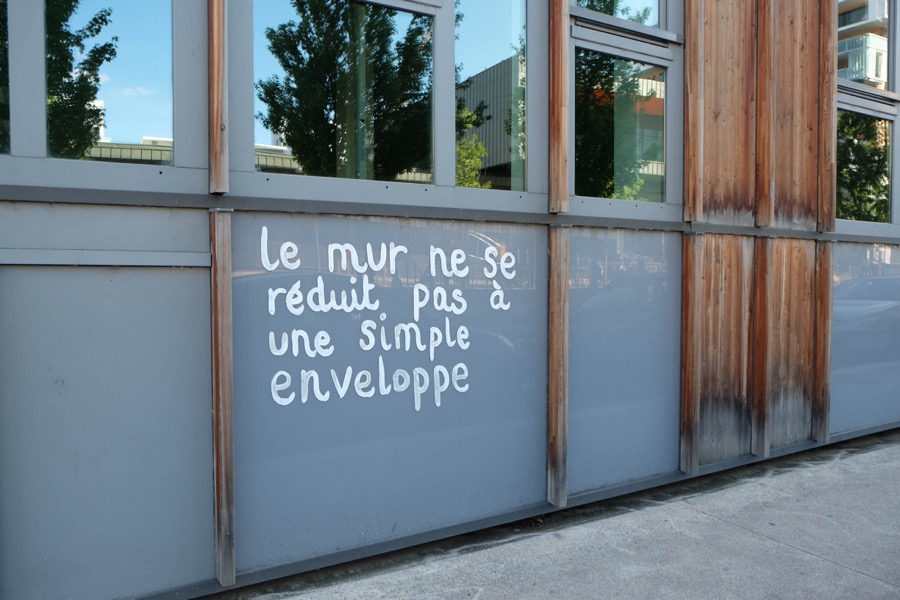 le mur ne se
réduit pas à
une simple
enveloppe